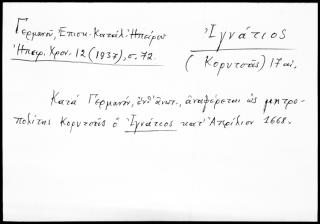 Γερμανοῦ, Ἐπισκ. Κατάλ. Ἠπείρου
Ἠπειρ. Χρον. 12 (1937), σ. 72.
Ἰγνάτιος
(Κορυτσᾶς) 17 αἰ.
Κατὰ Γερμανόν, ἔνθ' ἀνωτ., ἀναφέρεται ὡς μητρο-
πολίτης Κορυτσᾶς ὁ Ἰγνάτιος κατ' Ἀπρίλιον 1668.